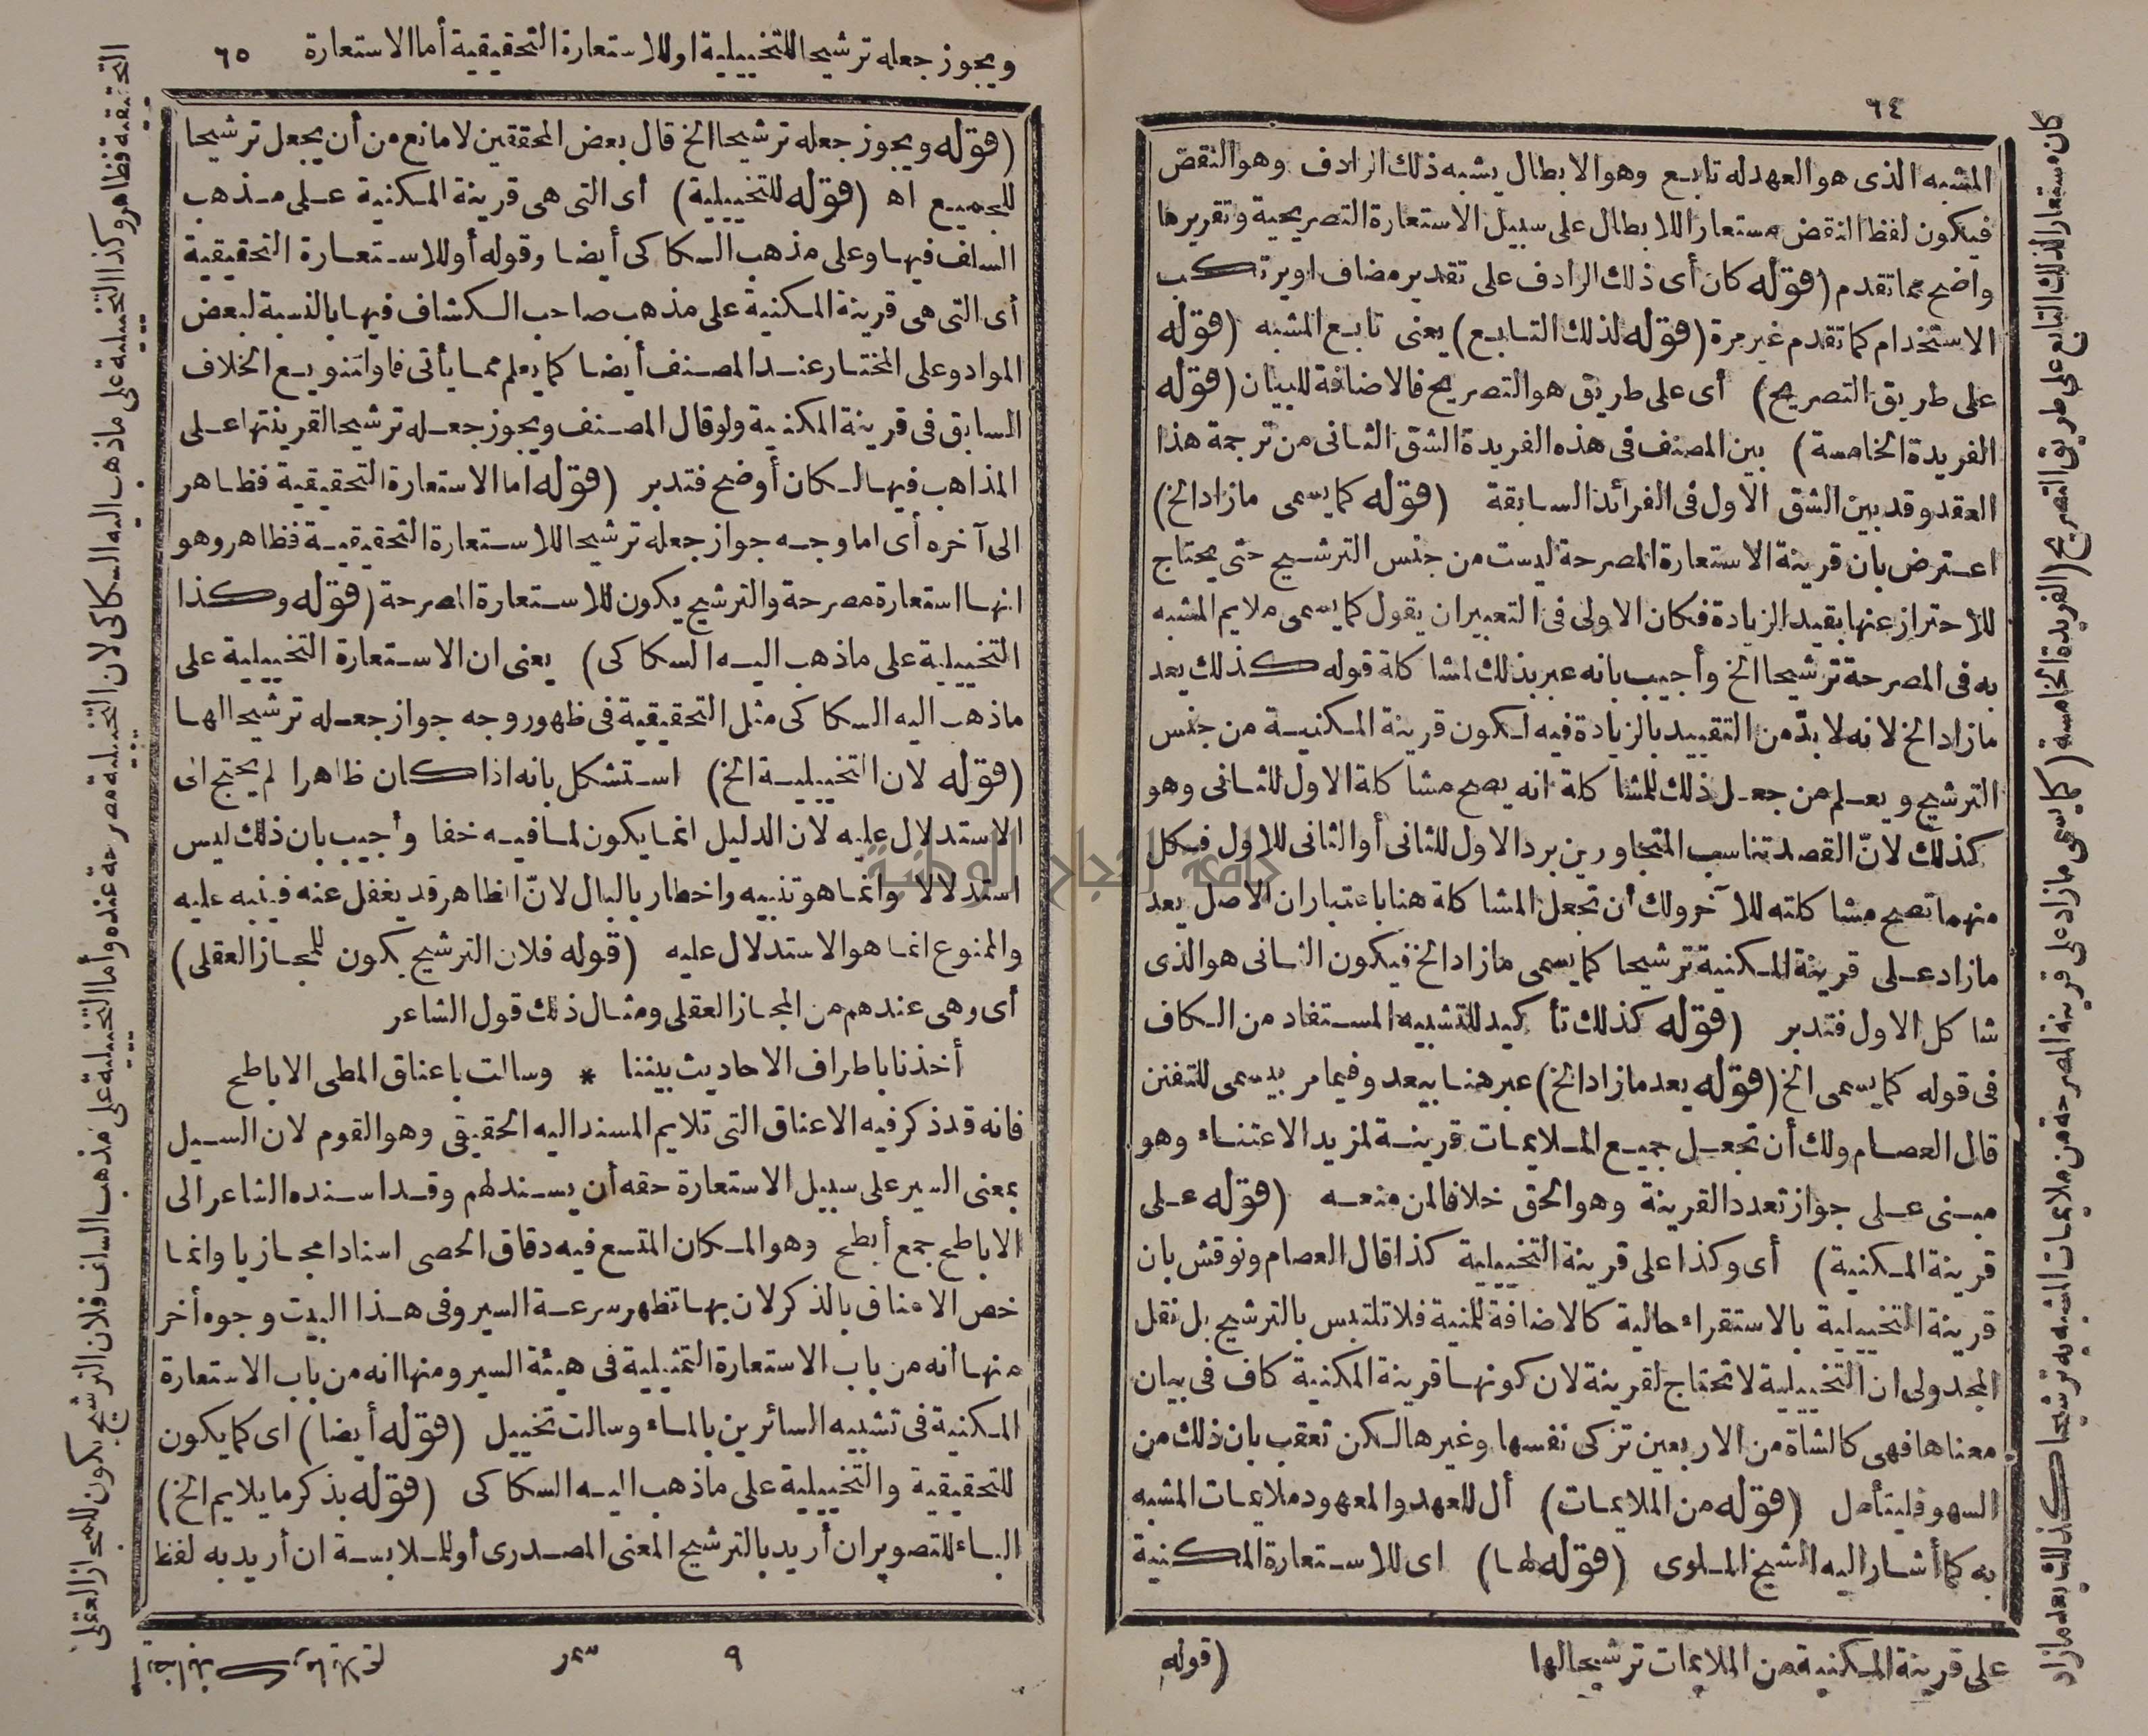 ٦٤
كان مستعارا لذلك التابع على طريق التصريح (الفريدة الخامسة) كما يسمى مازاد على قرينة المصرحة من ملايمات المشبه به ترشيحا كذلك يعد مازاد
المشبه الذى هو العهد له تابع وهو الابطال يشبه ذلك الرادف وهو النقض
فيكون لفظ النقض مستعارا للابطال على سبيل الاستعارة التصريحية وتقريرها
واضح مما تقدم (قوله كان أى ذلك الرادف على تقدير مضاف او يرتكب
الاستخدام كما تقدم غير مرة (قوله لذلك التابع) يعنى تابع المشبه (قوله
على طريق التصريح) أى على طريق هو التصريح فالاضافة للبيان (قوله
الفريدة الخامسة) بين المصنف فى هذه الفريدة الشق الثانى من ترجمة هذا
العقد وقد بين الشق الاول فى الفرائد السابقة (قوله كما يسمى مازاد الخ)
اعترض بان قرينة الاستعارة المصرحة ليست من جنس الترشيح حتى يحتاج
للاحتراز عنها بقيد الزيادة فكان الاولى فى التعبير ان يقول كما يسمى ملايم المشبه
به فى المصرحة ترشيحا الخ وأجيب بانه عبر بذلك لمشاكلة قوله كذلك يعد
مازاد الخ لانه لا بدّ من التقييد بالزيادة فيه لكون قرينة المكنية من جنس
الترشيح ويعلم من جعل ذلك للمشاكلة انه يصح مشاكلة الاول للثانى وهو
كذلك لانّ القصد تناسب المتجاورين برد الاول للثانى أو الثانى للاول فكل
منهما تصح مشاكلته للآخر ولك أن تجعل المشاكلة هنا باعتبار ان الاصل يعد
مازاد على قرينة المكنية ترشيحا كما يسمى مازاد الخ فيكون الثانى هو الذى
شاكل الاول فتدبر (قوله كذلك تأكيد للتشبيه المستفاد من الكاف
فى قوله كما يسمى الخ (قوله يعد مازاد الخ) عبر هنا بيعد وفيما مر بيسمى للتفنن
قال العصام ولك أن تجعل جميع الملايمات قرينة لمزيد الاعتناء وهو
مبنى على جواز تعدد القرينة وهو الحق خلافا لمن منعه (قوله على
قرينة المكنية) أى وكذا على قرينة التخييلية كذا قال العصام ونوقش بان
قرينة التخييلية بالاستقراء حالية كالاضافة للمنية فلا تلتبس بالترشيح بل نقل
المجدولى ان التخييلية لا تحتاج لقرينة لان كونها قرينة المكنية كاف فى بيان
معناها فهى كالشاة من الاربعين تزكى نفسها وغيرها لكن تعقب بان ذلك من
السهو فليتأمل (قوله من الملايمات) أل للعهد والمعهود ملايمات المشبه
به كما أشار اليه الشيخ الملوى (قوله لها) اى للاستعارة المكنية
على قرينة المكنية من الملايمات ترشيحا لها
(قوله
ويجوز جعله ترشيحا للتخييلية او للاستعارة التحقيقية أما الاستعارة ٦٥
(قوله ويجوز جعله ترشيحا الخ قال بعض المحققين لا مانع من أن يجعل ترشيحا
للجميع اه (قوله للتخييلية) أى التى هى قرينة المكنية على مذهب
السلف فيها وعلى مذهب السكاكى أيضا وقوله أو للاستعارة التحقيقية
أى التى هى قرينة المكنية على مذهب صاحب الكشاف فيها بالنسبة لبعض
المواد وعلى المختار عند المصنف أيضا كما يعلم مما يأتى فاو لتنويع الخلاف
السابق فى قرينة المكنية ولو قال المصنف ويجوز جعله ترشيحا لقرينتها على
المذاهب فيها لكان أوضح فتدبر (قوله أما الاستعارة التحقيقية فظاهر
الى آخره أى اما وجه جواز جعله ترشيحا للاستعارة التحقيقية فظاهر وهو
انها استعارة مصرحة والترشيح يكون للاستعارة المصرحة (قوله وكذا
التخييلية على ماذهب اليه السكاكى) يعنى ان الاستعارة التخييلية على
ماذهب اليه السكاكى مثل التحقيقية فى ظهور وجه جواز جعله ترشيحا لها
(قوله لان التخييلية الخ) استشكل بانه اذا كان ظاهرا لم يحتج الى
الاستدلال عليه لان الدليل انما يكون لما فيه خفا وأجيب بان ذلك ليس
استدلالا وانما هو تنبيه واخطار بالبال لانّ الظاهر قد يغفل عنه فينبه عليه
والممنوع انما هو الاستدلال عليه (قوله فلان الترشيح يكون للمجاز العقلى)
أى وهى عندهم من المجاز العقلى ومثال ذلك قول الشاعر
أخذنا باطراف الاحاديث بيننا * وسالت باعناق المطى الاباطح
فانه قد ذكر فيه الاعناق التى تلايم المسند اليه الحقيقى وهو القوم لان السيل
بمعنى السير على سبيل الاستعارة حقه أن يسند لهم وقد اسنده الشاعر الى
الاباطح جمع أبطح وهو المكان المتسع فيه دقاق الحصى اسنادا مجازيا وانما
خص الاعناق بالذكر لان بها تظهر سرعة السير وفى هذا البيت وجوه أخر
منها أنه من باب الاستعارة التمثيلية فى هيئة السير ومنها انه من باب الاستعارة
المكنية فى تشبيه السائرين بالماء وسالت تخييل (قوله أيضا) اى كما يكون
للتحقيقية والتخييلية على ماذهب اليه السكاكى (قوله بذكر ما يلايم الخ)
الباء للتصوير ان أريد بالترشيح المعنى المصدرى أو للملابسة ان أريد به لفظ
التحقيقية فظاهر وكذا التخييلية على ماذهب اليه السكاكى لان التخييلية مصرحة عنده وأما التخييلية على مذهب السلف فلان الترشيح يكون للمجاز العقلى
أيضا بذكر ما يلايم
٩ سمر
جامعة النجاح الوطنية